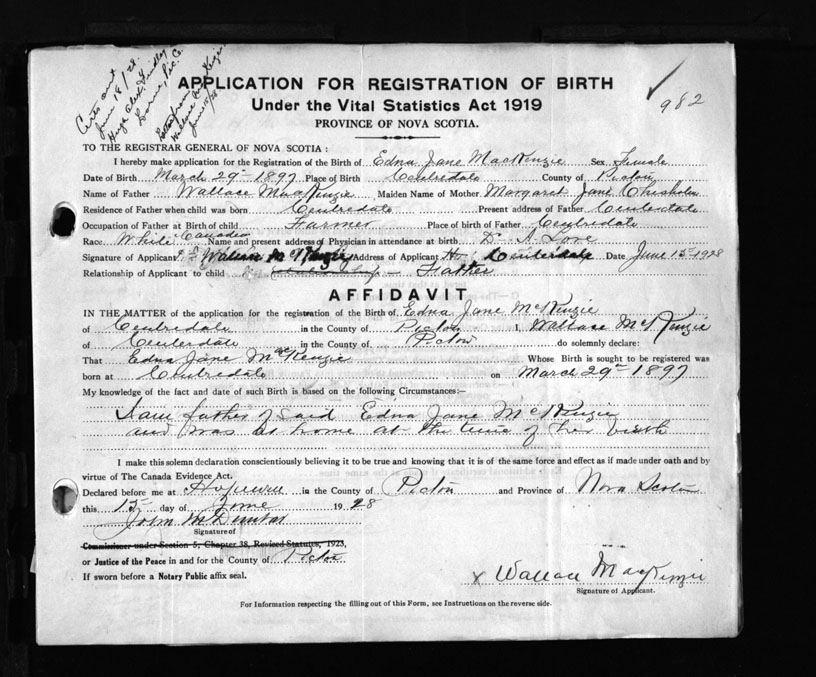 Certs sent
June 18/28
Hugh Alex.
Lorne, Pic. Co.
Letter from
Wallace
June 15/28
APPLICATION FOR REGISTRATION OF BIRTH
982
Under the Vital Statistics Act 1919
PROVINCE OF NOVA SCOTIA.
TO THE REGISTRAR GENERAL OF NOVA SCOTIA:
I hereby make application for the Registration of the Birth of Edna Jane MacKenzie Sex Female
Date of Birth March 29th 1897 Place of Birth Centredale County of Pictou
Name of Father Wallace MacKenzie Maiden Name of Mother Margaret Jane Chisholm
Residence of Father when child was born Centredale Present address of Father Centerdale
Occupation of Father at Birth of child Farmer Place of birth of Father Centredale
Race White Canadian Name and present address of Physician in attendance at birth Dr. Love
Signature of Applicant Wallace McKenzie Address of Applicant Centerdale Date June 15th 1928
Relationship of Applicant to child Father
AFFIDAVIT
IN THE MATTER of the application for the registration of the Birth of Edna Jane McKenzie
of Centredale in the County of Pictou I, Wallace McKenzie
of Centerdale in the County of Pictou do solemnly declare:
That Edna Jane MacKenzie Whose Birth is sought to be registered was
born at Centredale on March 29th 1897
My knowledge of the fact and date of such Birth is based on the following Circumstances:—
I am father of said Edna Jane McKenzie
and was at home at the time of her birth
I make this solemn declaration conscientiously believing it to be true and knowing that it is of the same force and effect as if made under oath and by
virtue of The Canada Evidence Act.
Declared before me at Hopewell in the County of Pictou and Province of Nova Scotia
this 15th day of June 1928
John McDunbar
Signature of
Commissioner under Section 5, Chapter 38, Revised Statutes, 1923,
or Justice of the Peace in and for the County of Pictou
If sworn before a Notary Public affix seal.
x Wallace MacKenzie
Signature of Applicant.
For Information respecting the filling out of this Form, see Instructions on the reverse side.